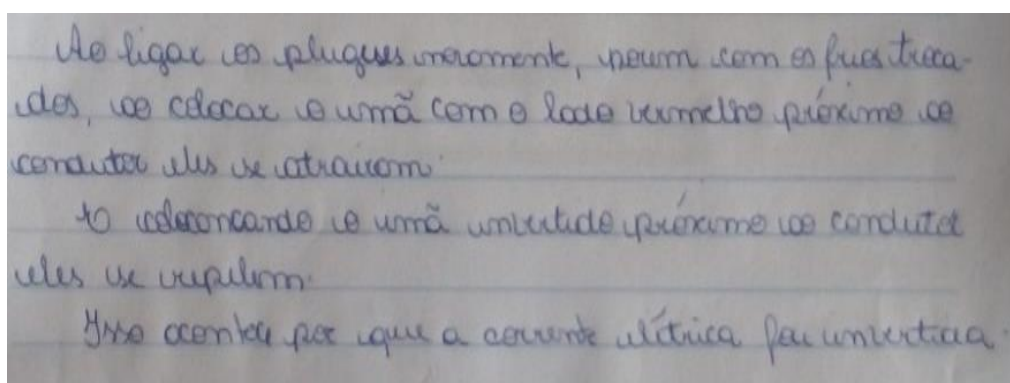 Ao ligar os plugues novamente, porem com os fios troca-
dos, ao colocar o imã com o lado vermelho próximo ao
condutor eles se atraicom.
ao imã invertido próximo ao condutor
eles se repelem.
Isso acontece por que a corrente elétrica foi invertida.